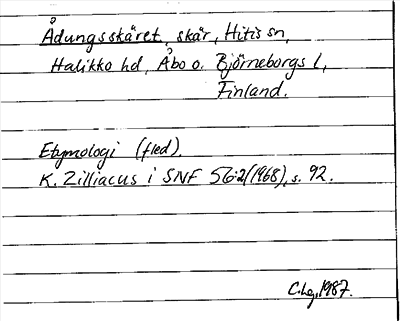 Ådungsskäret, skär, Hitis sn,
Halikko hd, Åbo o. Björneborgs l,
Finland.
Etymologi (fled).
K. Zilliacus i SNF 56:2(1968), s. 92.
C.Lg. 1987.